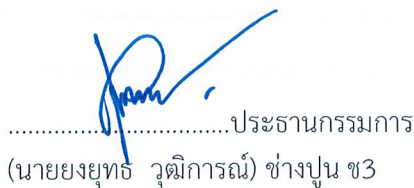 ................................ประธานกรรมการ
(นายยงยุทธ วุฒิการณ์) ช่างปูน ช3